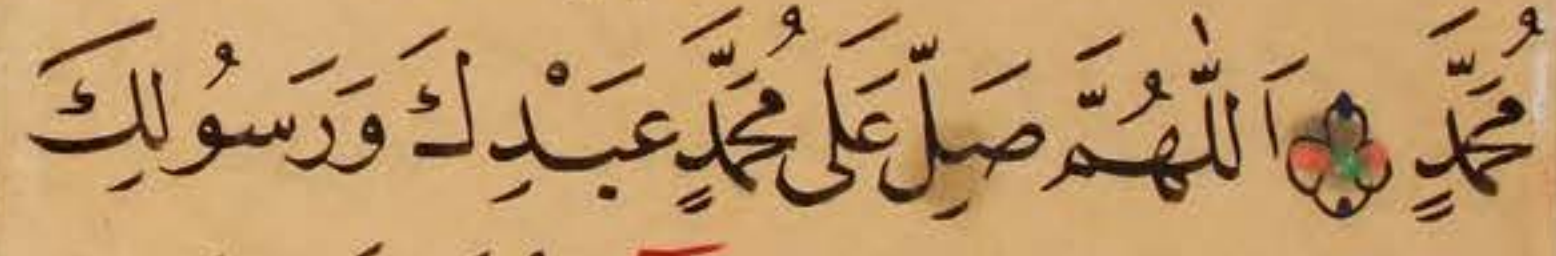 مُحَمَّدٍ اَللّٰهُمَّ صَلِّ عَلَى مُحَمَّدٍ عَبْدِكَ وَرَسُولِكَ